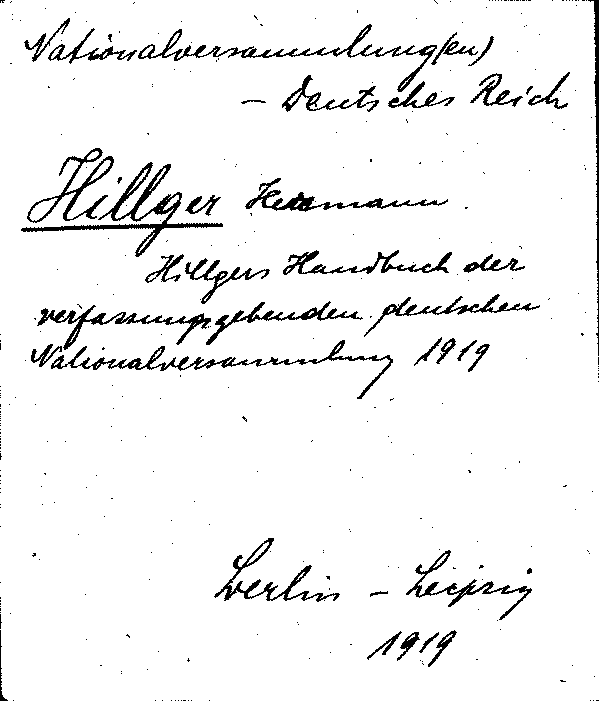 Nationalversammlung(en)
— Deutsches Reich
Hillger Hermann
Hillgers Handbuch der
verfassungsgebenden deutschen
Nationalversammlung 1919
Berlin – Leipzig
1919